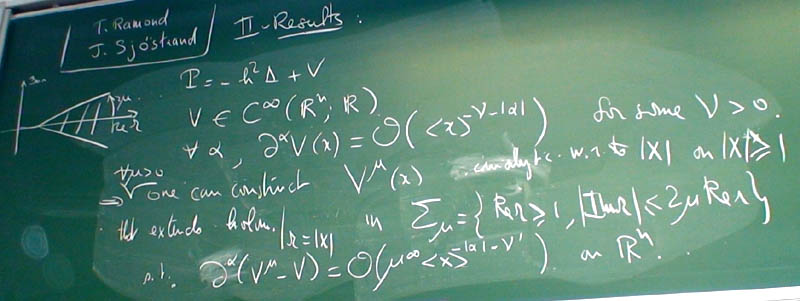 T. Ramond
J. Sjöstrand
II - Results :
P = - h² Δ + V
V ∈ C^∞ (ℝⁿ; ℝ)
∀ α, ∂^α V(x) = O(<x>^{-ν-|α|}) for some ν > 0.
∀μ>0
⇒ one can construct V^μ(x) analytic w.r. to |x| on |x| ≥ 1
that extends holom. |r=|x| in Σ_μ = { Re r ≥ 1, |Im r| < 2μ Re r }
s.t. ∂^α (V^μ - V) = O(μ^∞ <x>^{-|α|-ν'}) on ℝⁿ.